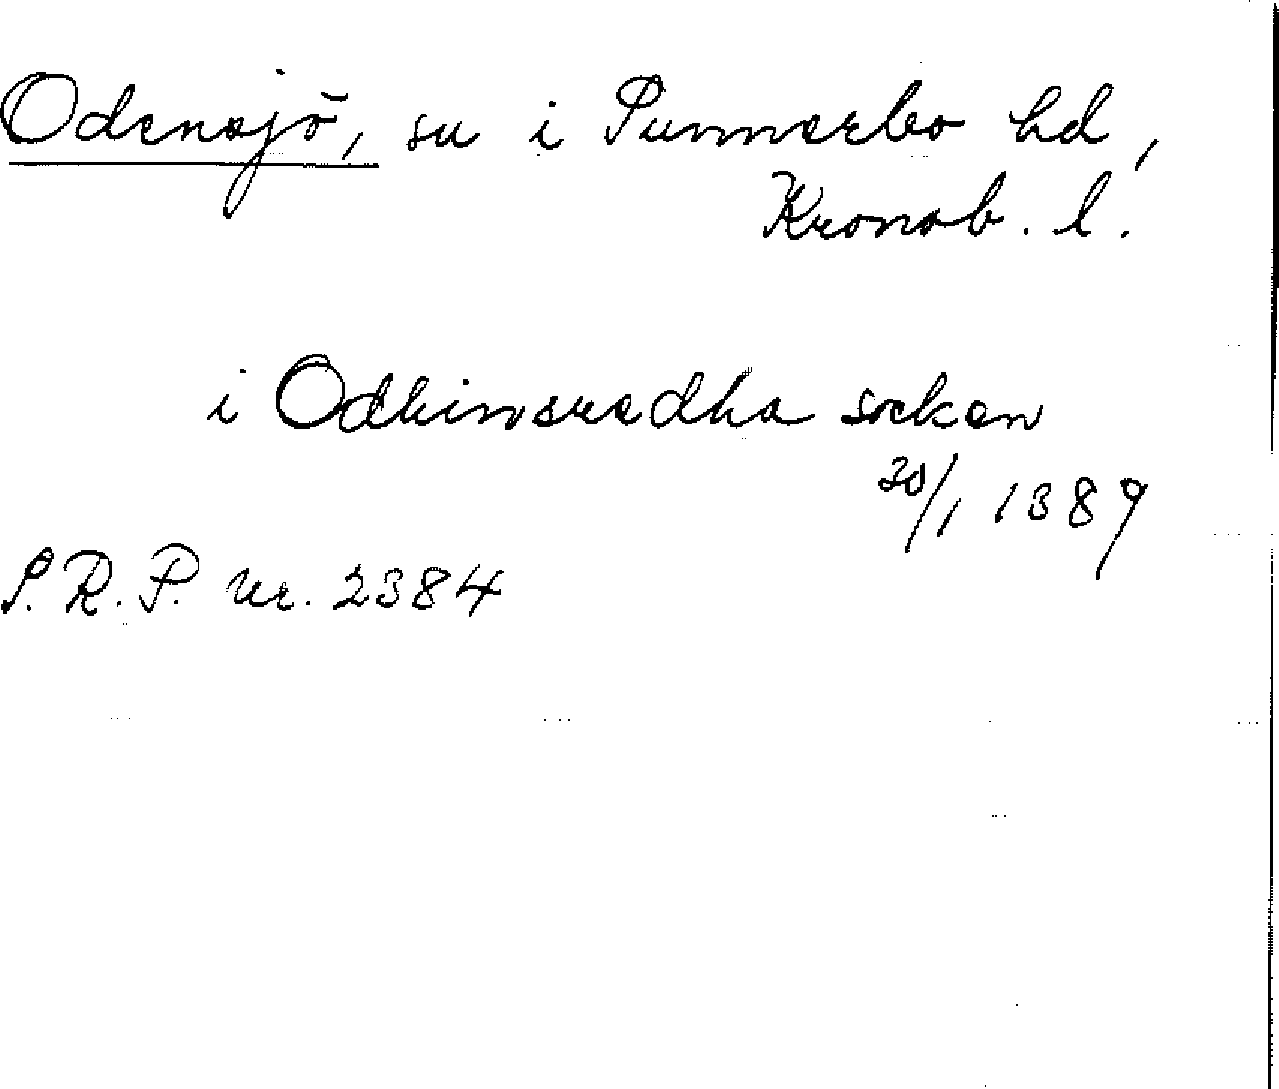 Odensjö, sn i Sunnerbo hd,
Kronob. l.
i Odhinsredha socken
30/1 1389
S.R.P. nr. 2384